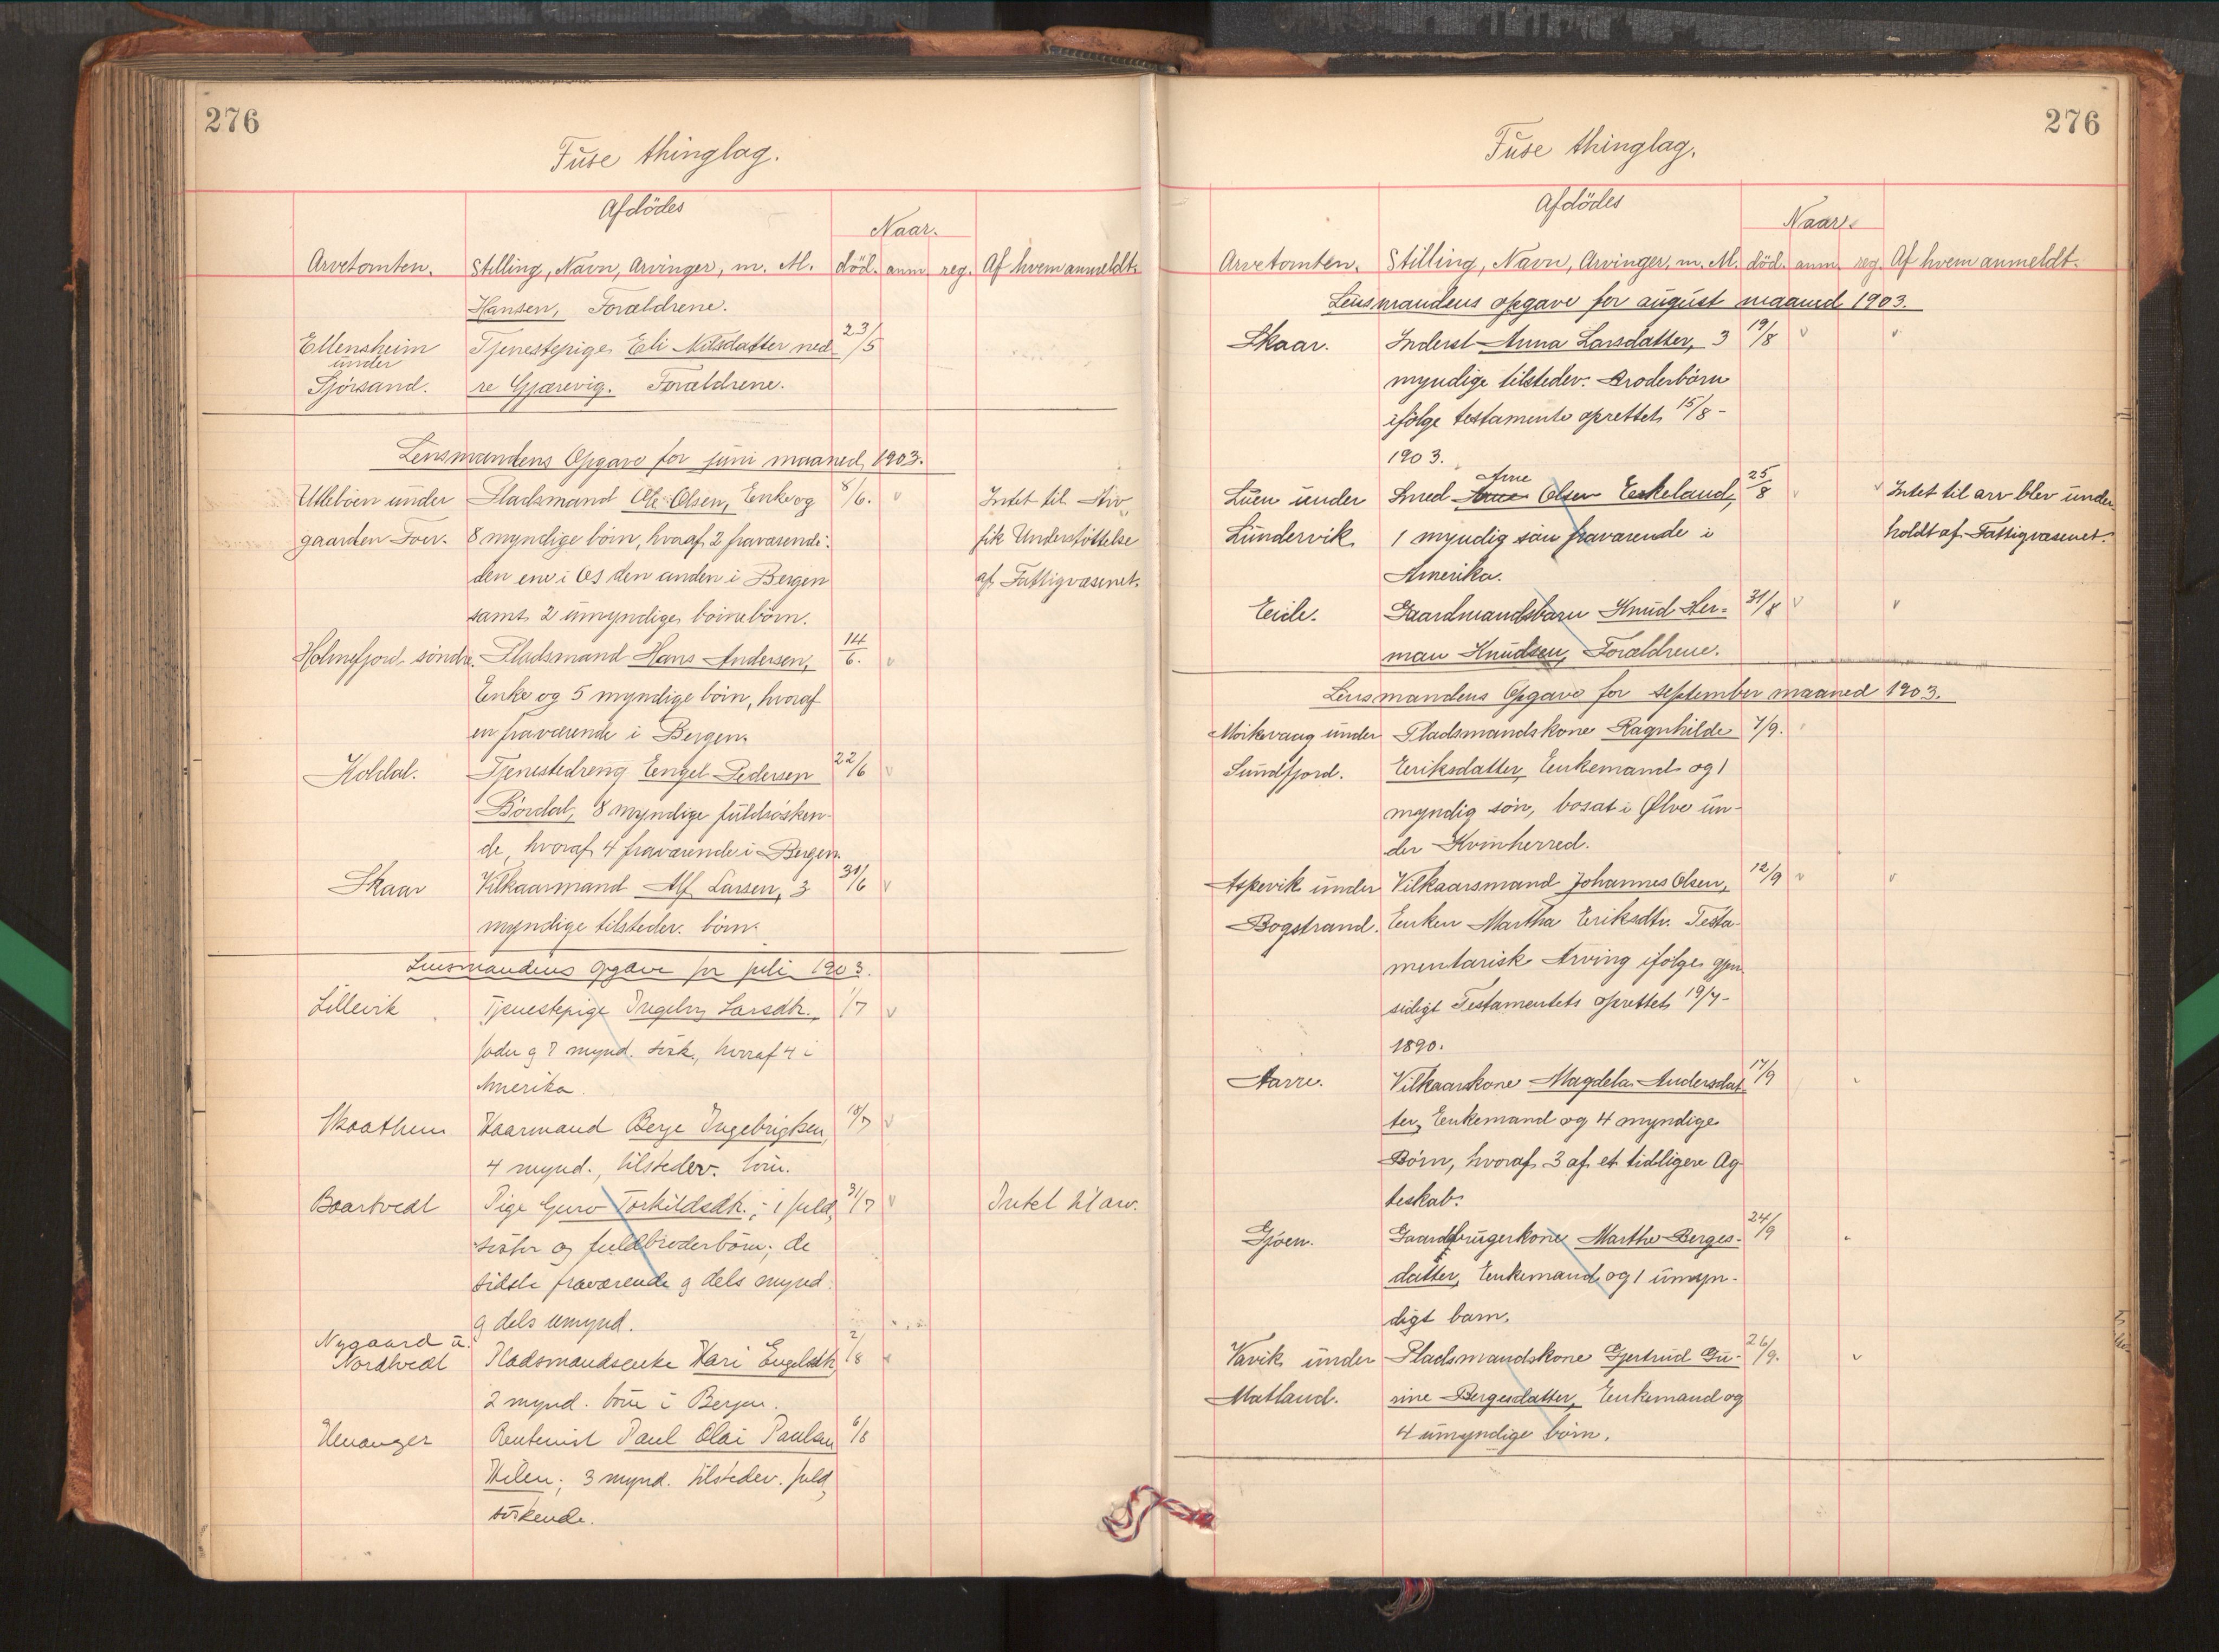 276
Fuse thinglag.
Afdödes
Naar.
Arvetomten. Stilling, Navn, Arvinger, m. M. död. anm. reg. Af hvem anmeldt.
Hansen, Forældrene.
Ellensheim Tjenestepige Eli Nilsdatter ned- 23/5
under
Sjörsand. re Gjærevig. Forældrene.
Lensmandens Opgave for juni maaned, 1903.
Utleböen under Pladsmand Ole Olsen, Enke og 8/6. v Intet til Arv,
gaarden Foer. 8 myndige börn, hvoraf 2 fraværende: fik Understöttelse
den ene i Os den anden i Bergen af Fattigvæsenet.
samt 2 umyndige börnebörn.
Holmefjord söndre. Pladsmand Hans Andersen, 14/6. v
Enke og 5 myndige börn, hvoraf
en fraværende i Bergen.
Koldal. Tjenestedreng Engel Pedersen 22/6 v
Bördal, 8 myndige fuldsösken-
de, hvoraf 4 fraværende i Bergen.
Skaar Vilkaarmand Alf Larsen, 3 30/6 v
myndige tilstedev. börn.
Lensmandens Opgave for juli 1903.
Lillevik Tjenestepige Ingebrg Larsdtr., 1/7 v
fader og 7 mynd. sösk., hvoraf 4 i
Amerika.
Skaathun Kaarmand Berge Ingebrigtsen, 10/7 v
4 mynd., tilstedev. börn.
Baartvedt Pige Guro Torkildsdtr.; 1 fuld, 31/7 v Intet til arv.
söster og fuldbroderbörn; de
sidste fraværende og dels mynd.
og dels umynd.
Nygaard u.
Nordtvedt Pladsmandsenke Kari Engelsdtr, 2/8 v
2 mynd. börn i Bergen.
Henanger Rentenist Paul Olai Paulsen 6/8
Hilen; 3 mynd. tilstedev. fuld,
söskende.
276
Fuse thinglag.
Afdödes
Naar.
Arvetomten. Stilling, Navn, Arvinger, m. M. död. anm. reg. Af hvem anmeldt.
Lensmandens opgave for august maaned 1903.
Skaar. Inderst Anna Larsdatter, 3 19/8 v v
myndige tilstedev. Broderbörn
ifölge testamente oprettet 15/8 -
1903.
Arne
Luen under Smed Olsen Eekeland, 25/8 v v Intet til arv blev under
Lundervik 1 myndig sön fraværende i holdt af Fattigvæsenet.
Amerika.
Eide. Gaardmandsbarn Knud Her- 31/8 v v
man Knudsen, Forældrene.
Lensmandens Opgave for september maaned 1903.
Mörkevaag under Pladsmandskone Ragnhilde 7/9.
Sundfjord. Eriksdatter, Enkemand og 1
myndig sön, bosat i Ølve un-
der Kvinherred.
Aspevik under Vilkaarsmand Johannes Olsen, 12/9 v v
Bogstrand. Enken Martha Eriksdtr. Testa-
mentarisk Arving ifölge gjen-
sidigt Testamentets oprettet 19/7 -
1890.
Aarre. Vilkaarskone Magdela Andersdat- 17/9
ter, Enkemand og 4 myndige
Börn, hvoraf 3 af et tidligere Æg-
teskab.
Gjöen. Gaardbrugerkone Martha Berges- 24/9
datter, Enkemand og 1 umyn-
digt barn.
Vavik under Pladsmandskone Gjertrud Gu- 26/9. v
Matland. rine Bergesdatter, Enkemand og
4 umyndige börn.